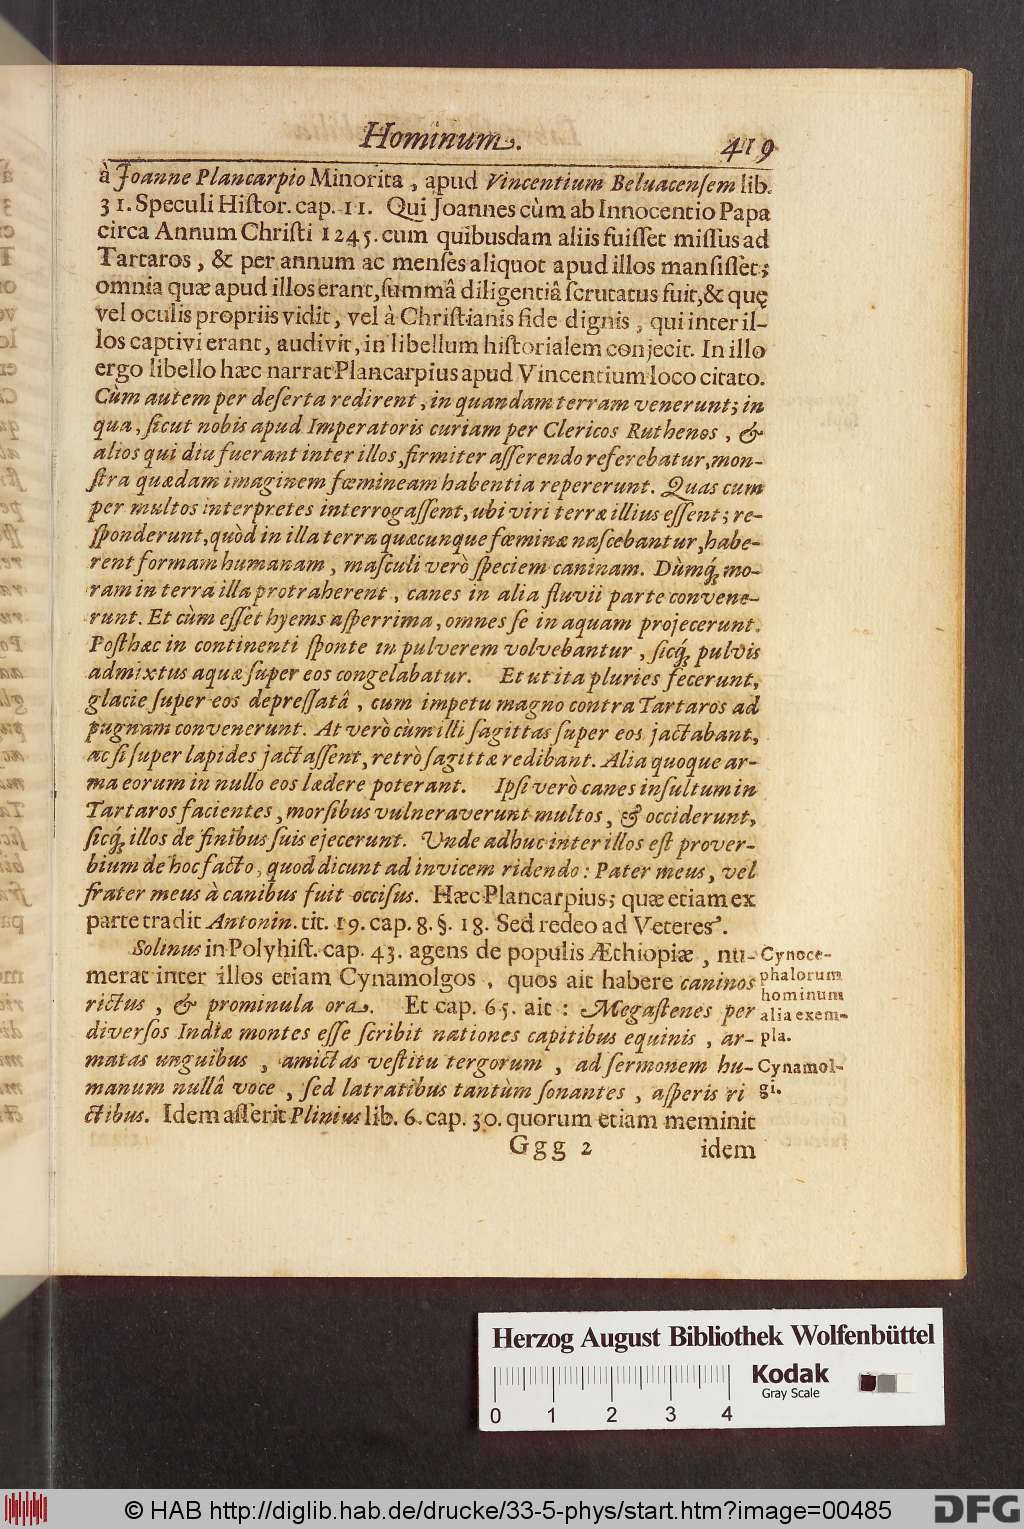 Hominum. 419
à Joanne Plancarpio Minorita, apud Vincentium Beluacensem lib.
31. Speculi Histor. cap. 11. Qui Joannes cùm ab Innocentio Papa
circa Annum Christi 1245. cum quibusdam aliis fuiſſet miſſus ad
Tartaros, & per annum ac menſes aliquot apud illos manſiſſet;
omnia quæ apud illos erant, ſummâ diligentiâ ſcrutatus fuit, & quę
vel oculis propriis vidit, vel à Chriſtianis fide dignis, qui inter il-
los captivi erant, audivit, in libellum hiſtorialem conjecit. In illo
ergo libello hæc narrat Plancarpius apud Vincentium loco citato.
Cùm autem per deſerta redirent, in quandam terram venerunt; in
qua, ſicut nobis apud Imperatoris curiam per Clericos Ruthenos, &
alios qui diu fuerant inter illos, firmiter aſſerendo referebatur, mon-
ſtra quædam imaginem fœmineam habentia repererunt. Quas cum
per multos interpretes interrogaſſent, ubi viri terræ illius eſſent; re-
ſponderunt, quòd in illa terra quæcunque fœminæ naſcebantur, habe-
rent formam humanam, maſculi verò ſpeciem caninam. Dùmq́; mo-
ram in terra illa protraherent, canes in alia fluvii parte convene-
runt. Et cùm eſſet hyems aſperrima, omnes ſe in aquam projecerunt.
Poſthæc in continenti ſponte in pulverem volvebantur, ſicq́; pulvis
admixtus aquæ ſuper eos congelabatur. Et ut ita pluries fecerunt,
glacie ſuper eos depreſſatâ, cum impetu magno contra Tartaros ad
pugnam convenerunt. At verò cùm illi ſagittas ſuper eos jactabant,
ac ſi ſuper lapides jactaſſent, retrò ſagittæ redibant. Alia quoque ar-
ma eorum in nullo eos lædere poterant. Ipſi verò canes inſultum in
Tartaros facientes, morſibus vulneraverunt multos, & occiderunt,
ſicq́; illos de finibus ſuis ejecerunt. Unde adhuc inter illos eſt prover-
bium de hoc facto, quod dicunt ad invicem ridendo: Pater meus, vel
frater meus à canibus fuit occiſus. Hæc Plancarpius; quæ etiam ex
parte tradit Antonin. tit. 19. cap. 8. §. 18. Sed redeo ad Veteres.
Solinus in Polyhiſt. cap. 43. agens de populis Æthiopiæ, nu-
merat inter illos etiam Cynamolgos, quos ait habere caninos
rictus, & prominula ora. Et cap. 65. ait: Megaſtenes per
diverſos Indiæ montes eſſe ſcribit nationes capitibus equinis, ar-
matas unguibus, amictas veſtitu tergorum, ad ſermonem hu-
manum nullâ voce, ſed latratibus tantùm ſonantes, aſperis ri
ctibus. Idem aſſerit Plinius lib. 6. cap. 30. quorum etiam meminit
Ggg 2 idem
Cynoce-
phalorum
hominum
alia exem-
pla.
Cynamol-
gi.
Herzog August Bibliothek Wolfenbüttel
Kodak
Gray Scale
0 1 2 3 4
© HAB http://diglib.hab.de/drucke/33-5-phys/start.htm?image=00485
DFG